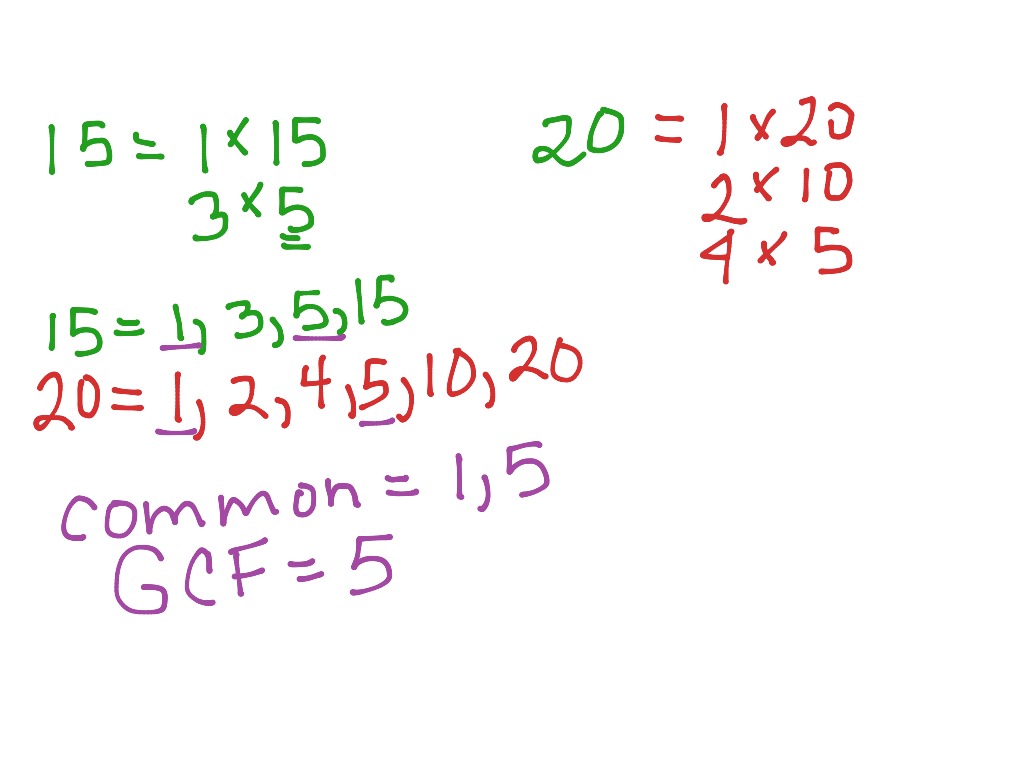 15 = 1 × 15
3 × 5
20 = 1 × 20
2 × 10
4 × 5
15 = 1, 3, 5, 15
20 = 1, 2, 4, 5, 10, 20
common = 1, 5
GCF = 5